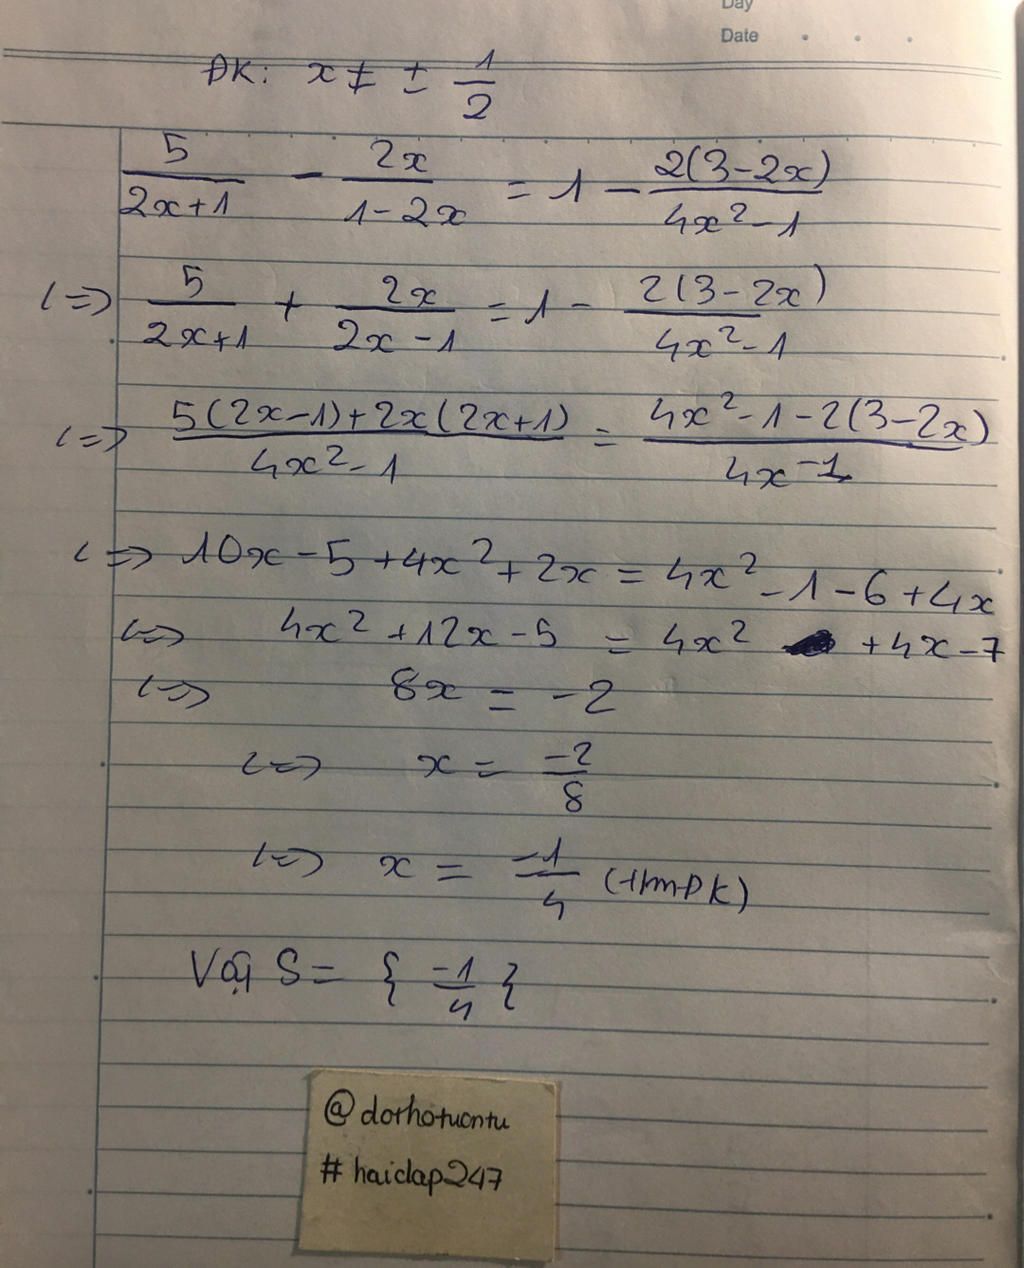 Day
Date
ĐK: x ≠ ± 1/2
5/(2x+1) - 2x/(1-2x) = 1 - 2(3-2x)/(4x²-1)
<=> 5/(2x+1) + 2x/(2x-1) = 1 - 2(3-2x)/(4x²-1)
<=> (5(2x-1)+2x(2x+1))/(4x²-1) = (4x²-1-2(3-2x))/(4x-1)
<=> 10x-5+4x²+2x = 4x²-1-6+4x
<=> 4x²+12x-5 = 4x² +4x-7
<=> 8x = -2
<=> x = -2/8
<=> x = -1/4 (tmĐK)
Vậy S = { -1/4 }
@dorhotuontu
# haiclap247